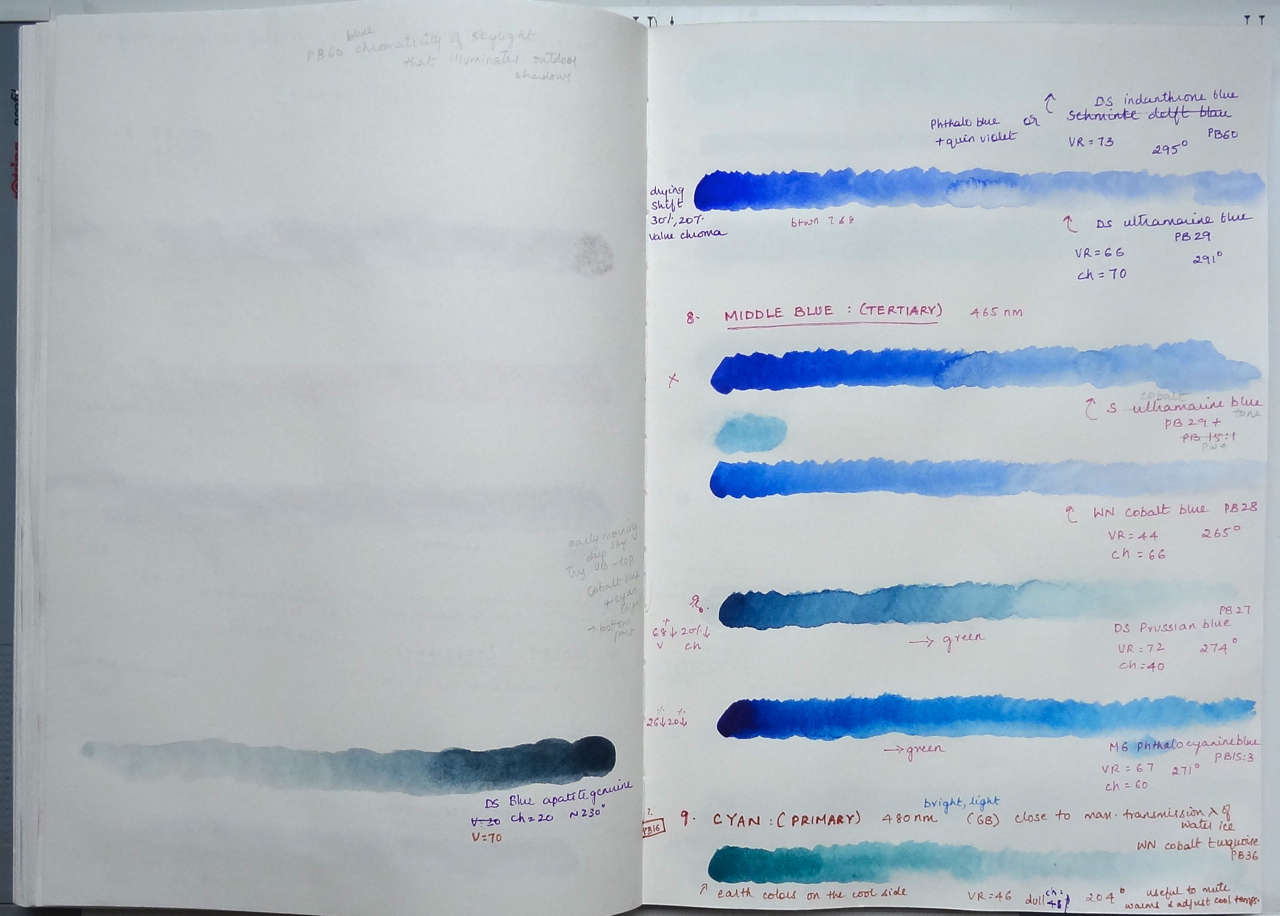 blue
PB60 chromaticity of skylight
that illuminates outdoor
shadows
early morning
deep sky
Try UB - top
cobalt blue
+ cyan
→ bottom
part
DS Blue apatite genuine
V=30 ch=20 ~230°
V=70
DS indanthrone blue
Phthalo blue or Schminke delft blau
+ quin violet
VR=73 295° PB60
drying
shift
30%, 20%
value chroma
btwn 7 & 8
DS ultramarine blue
PB29
VR=66 291°
ch=70
8. MIDDLE BLUE : (TERTIARY) 465 nm
x
cobalt
S ultramarine blue
tone
PB 29 +
PB 15:1
PW4
WN cobalt blue PB28
VR=44 265°
ch=66
PB27
68%↓ 20%↓
V ch
→ green
DS Prussian blue
VR=72 274°
ch=40
26%↓ 20%↓
→ green
MG Phthalocyanine blue
PB15:3
VR=67 271°
ch=60
?
PB16
bright, light
9. CYAN : (PRIMARY) 480 nm (GB) close to max. transmission λ of
water ice
WN cobalt turquoise
PB36
earth colors on the cool side VR=46 dull ch=45 204° useful to mute
warms & adjust cool temps.